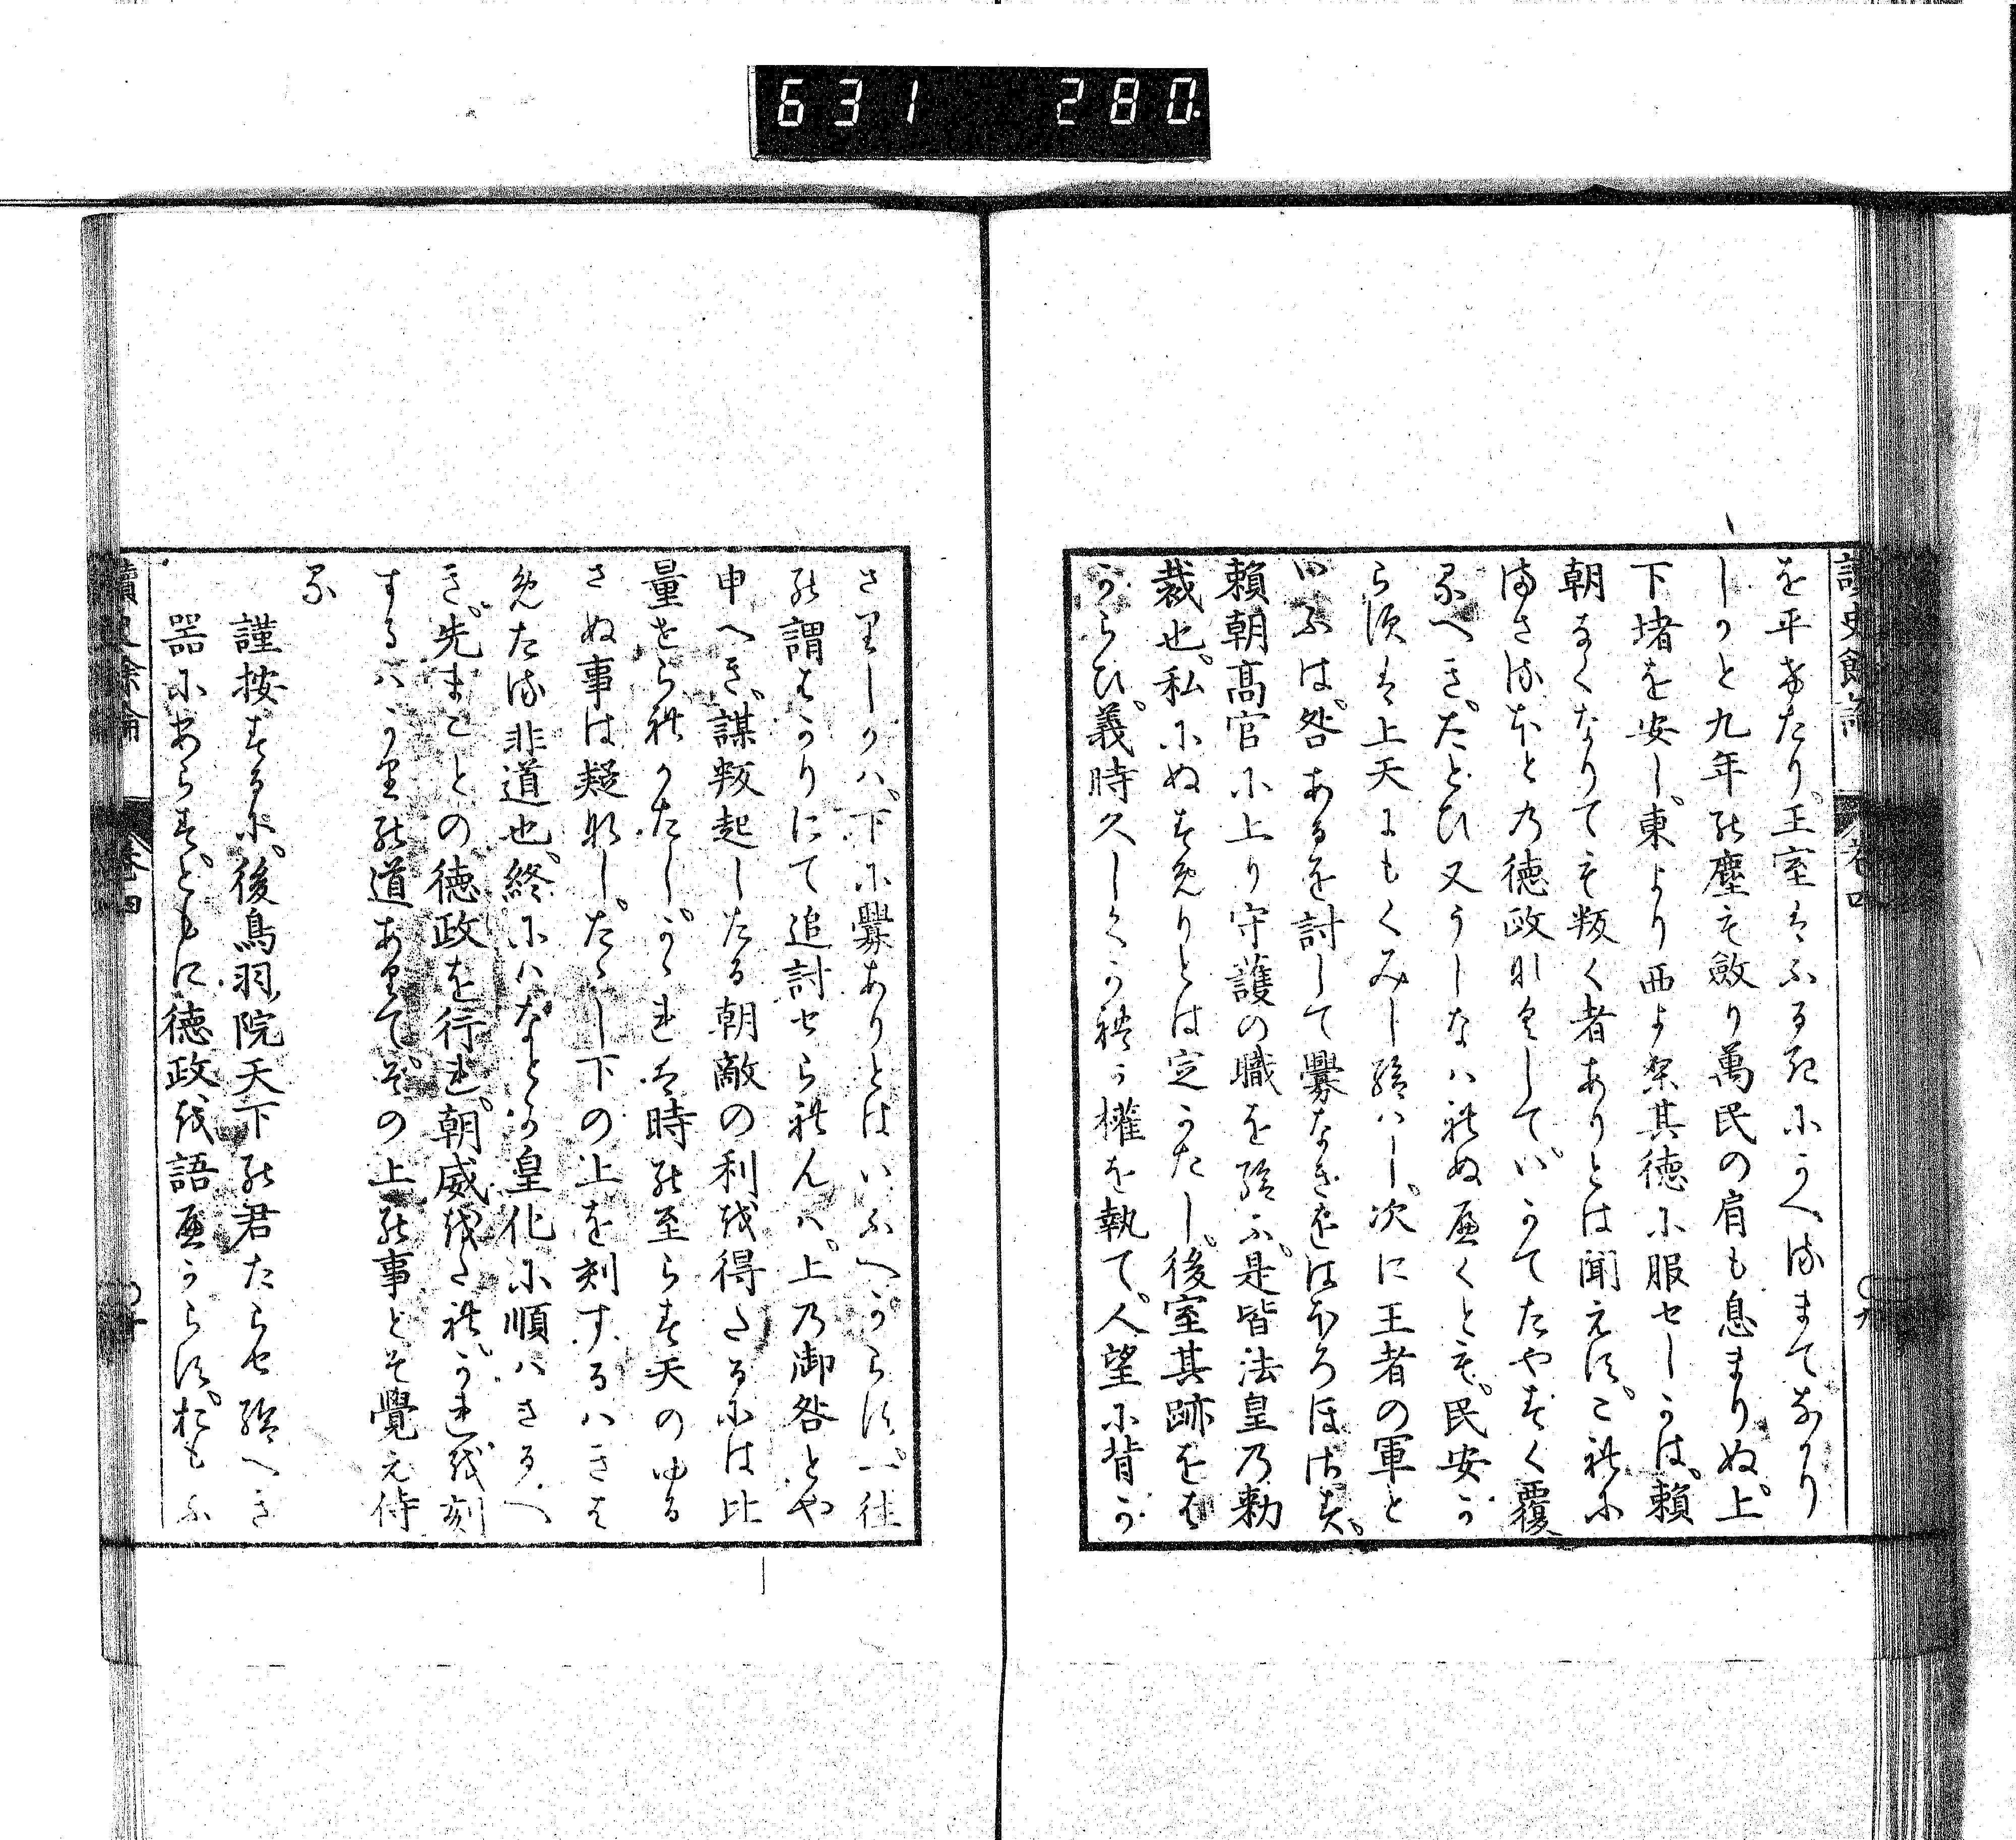 631 280
讀史餘論 卷四 〇十
を平けたり。王室はふるきにかへるまてなかり
しかと九年の塵も斂り萬民の肩も息まりぬ。上
下堵を安し。東より西より其徳に服せしかは。頼
朝なくなりても叛く者ありとは聞えす。これに
まさるほとの徳政なくして。いかてたやすく覆
るへき。たとひ又うしなはれぬへくとも。民安か
らすは上天よもくみし給はし。次に王者の軍と
いふは。咎あるを討して釁なきをはほろほさす。
頼朝高官に上り守護の職を給ふ。是皆法皇乃勅
裁也。私にぬすめりとは定かたし。後室其跡をは
からひ。義時久しくかれか權を執て。人望に背か
さりしかは。下に釁ありとはいふへからす。一往
の謂はかりにて追討せられんは。上乃御咎とや
申へき。謀叛起したる朝敵の利を得たるには比
量せられかたし。かゝれは時の至らす天のゆる
さぬ事は疑なし。たゝし下の上を剋するはきは
めたる非道也。終にはなとか皇化に順はさるへ
き。先まことの徳政を行れ。朝威をたれ。かれを刻
するはかりの道ありて。その上の事とそ覺え侍
る
謹按するに。後鳥羽院天下の君たらせ給へき
器にあらす。ともに徳政を語へからす。おもふ
讀史餘論 卷四 〇十